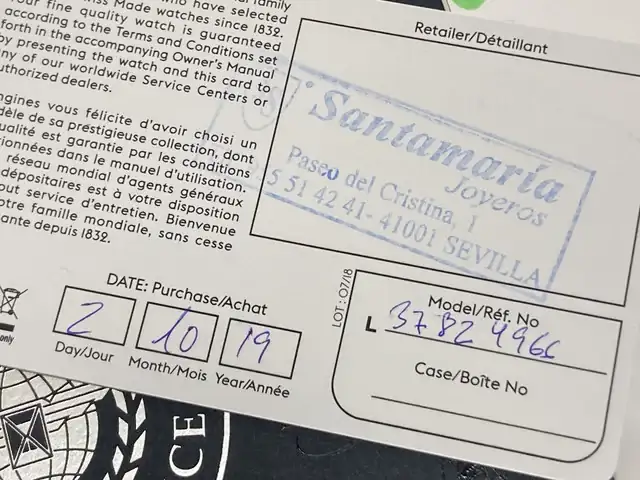 who have selected
iss Made watches since 1832.
our fine quality watch is guaranteed
according to the Terms and Conditions set
forth in the accompanying Owner's Manual
by presenting the watch and this card to
any of our worldwide Service Centers or
uthorized dealers.
ngines vous félicite d'avoir choisi un
dèle de sa prestigieuse collection, dont
ualité est garantie par les conditions
tionnées dans le manuel d'utilisation.
réseau mondial d'agents généraux
dépositaires est à votre disposition
out service d'entretien. Bienvenue
otre famille mondiale, sans cesse
ante depuis 1832.
Retailer/Détaillant
Santamaría
Joyeros
Paseo del Cristina, 1
5 51 42 41 - 41001 SEVILLA
DATE: Purchase/Achat
2 10 19
Day/Jour Month/Mois Year/Année
LOT: 07/18
Model/Réf. No
L 3782 4966
Case/Boîte No
only
CE